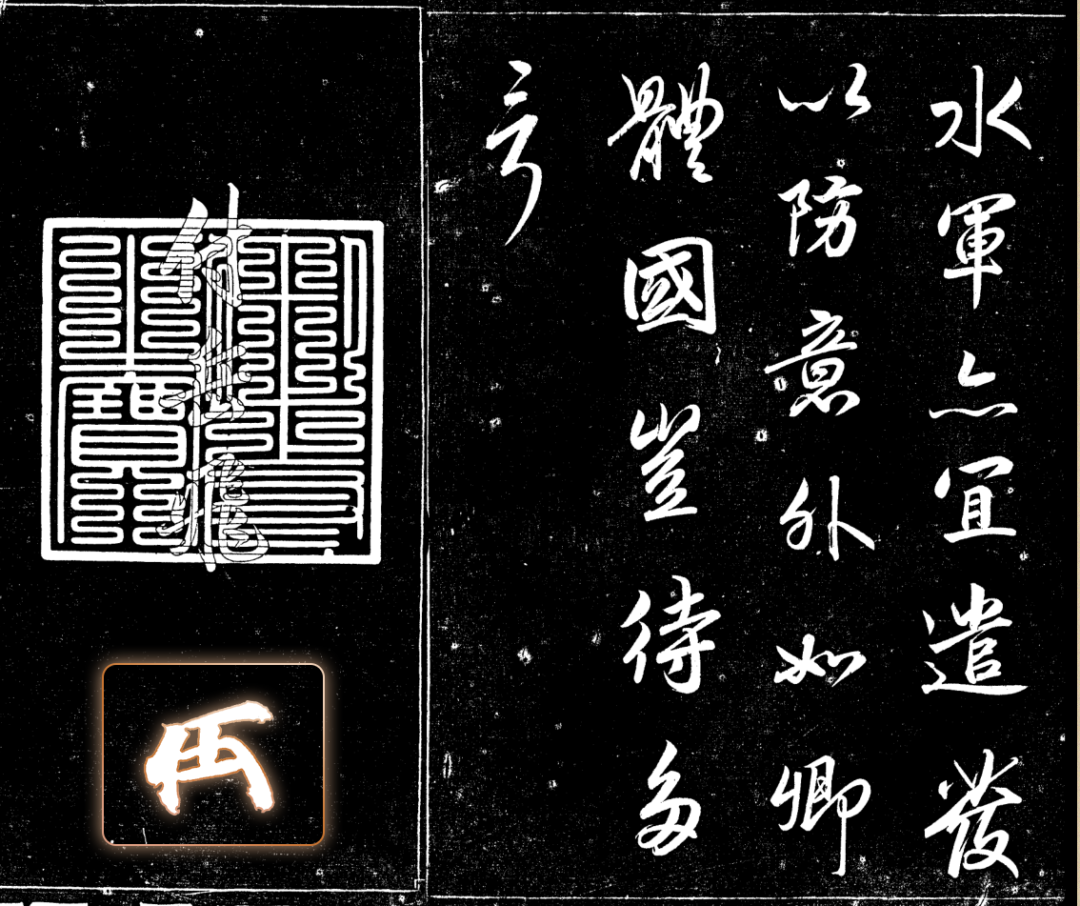 水軍亦宜遣發
以防意外如卿
體國豈待多
言
付岳飛